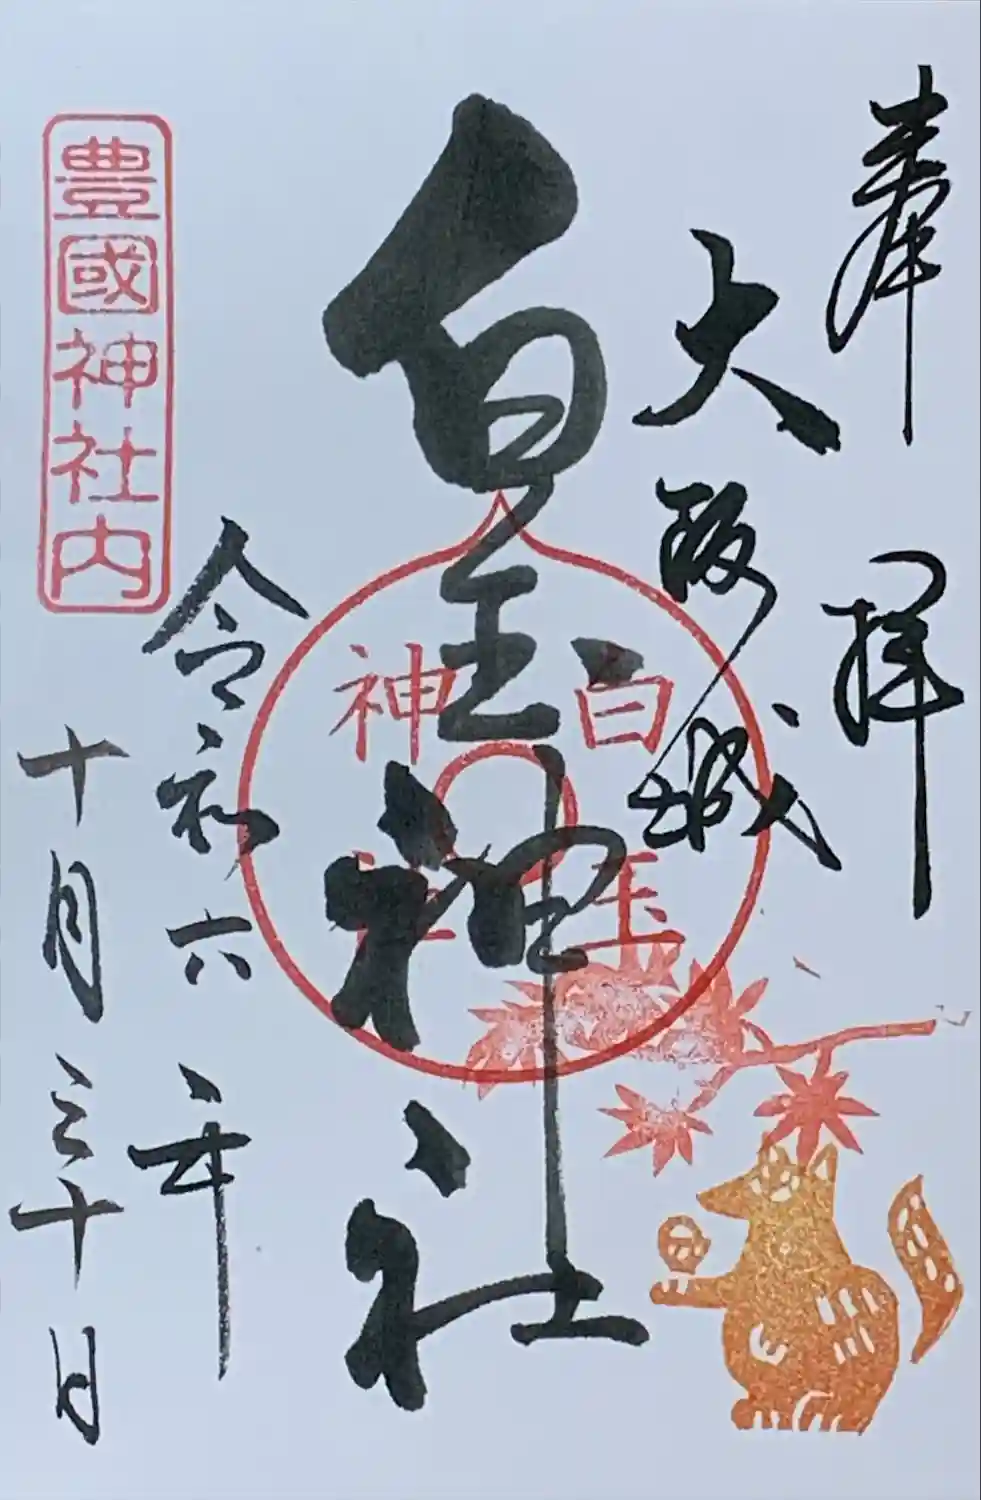 奉拝
大阪城
白玉神社
白玉
神社
令和六年
十月三十日
豊國神社内